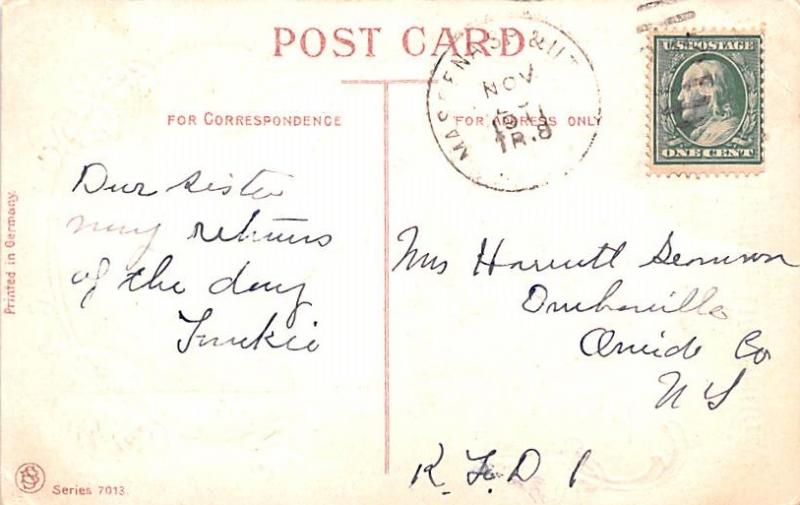 POST CARD
MASSENA SP. & UT
NOV
1911
TR. 8
U.S. POSTAGE
ONE CENT
FOR CORRESPONDENCE
FOR ADDRESS ONLY
Dear Sister
may returns
of the day
Mrs Harriett
Oneida Co
N Y
R.F.D 1
Printed in Germany.
Series 7013.